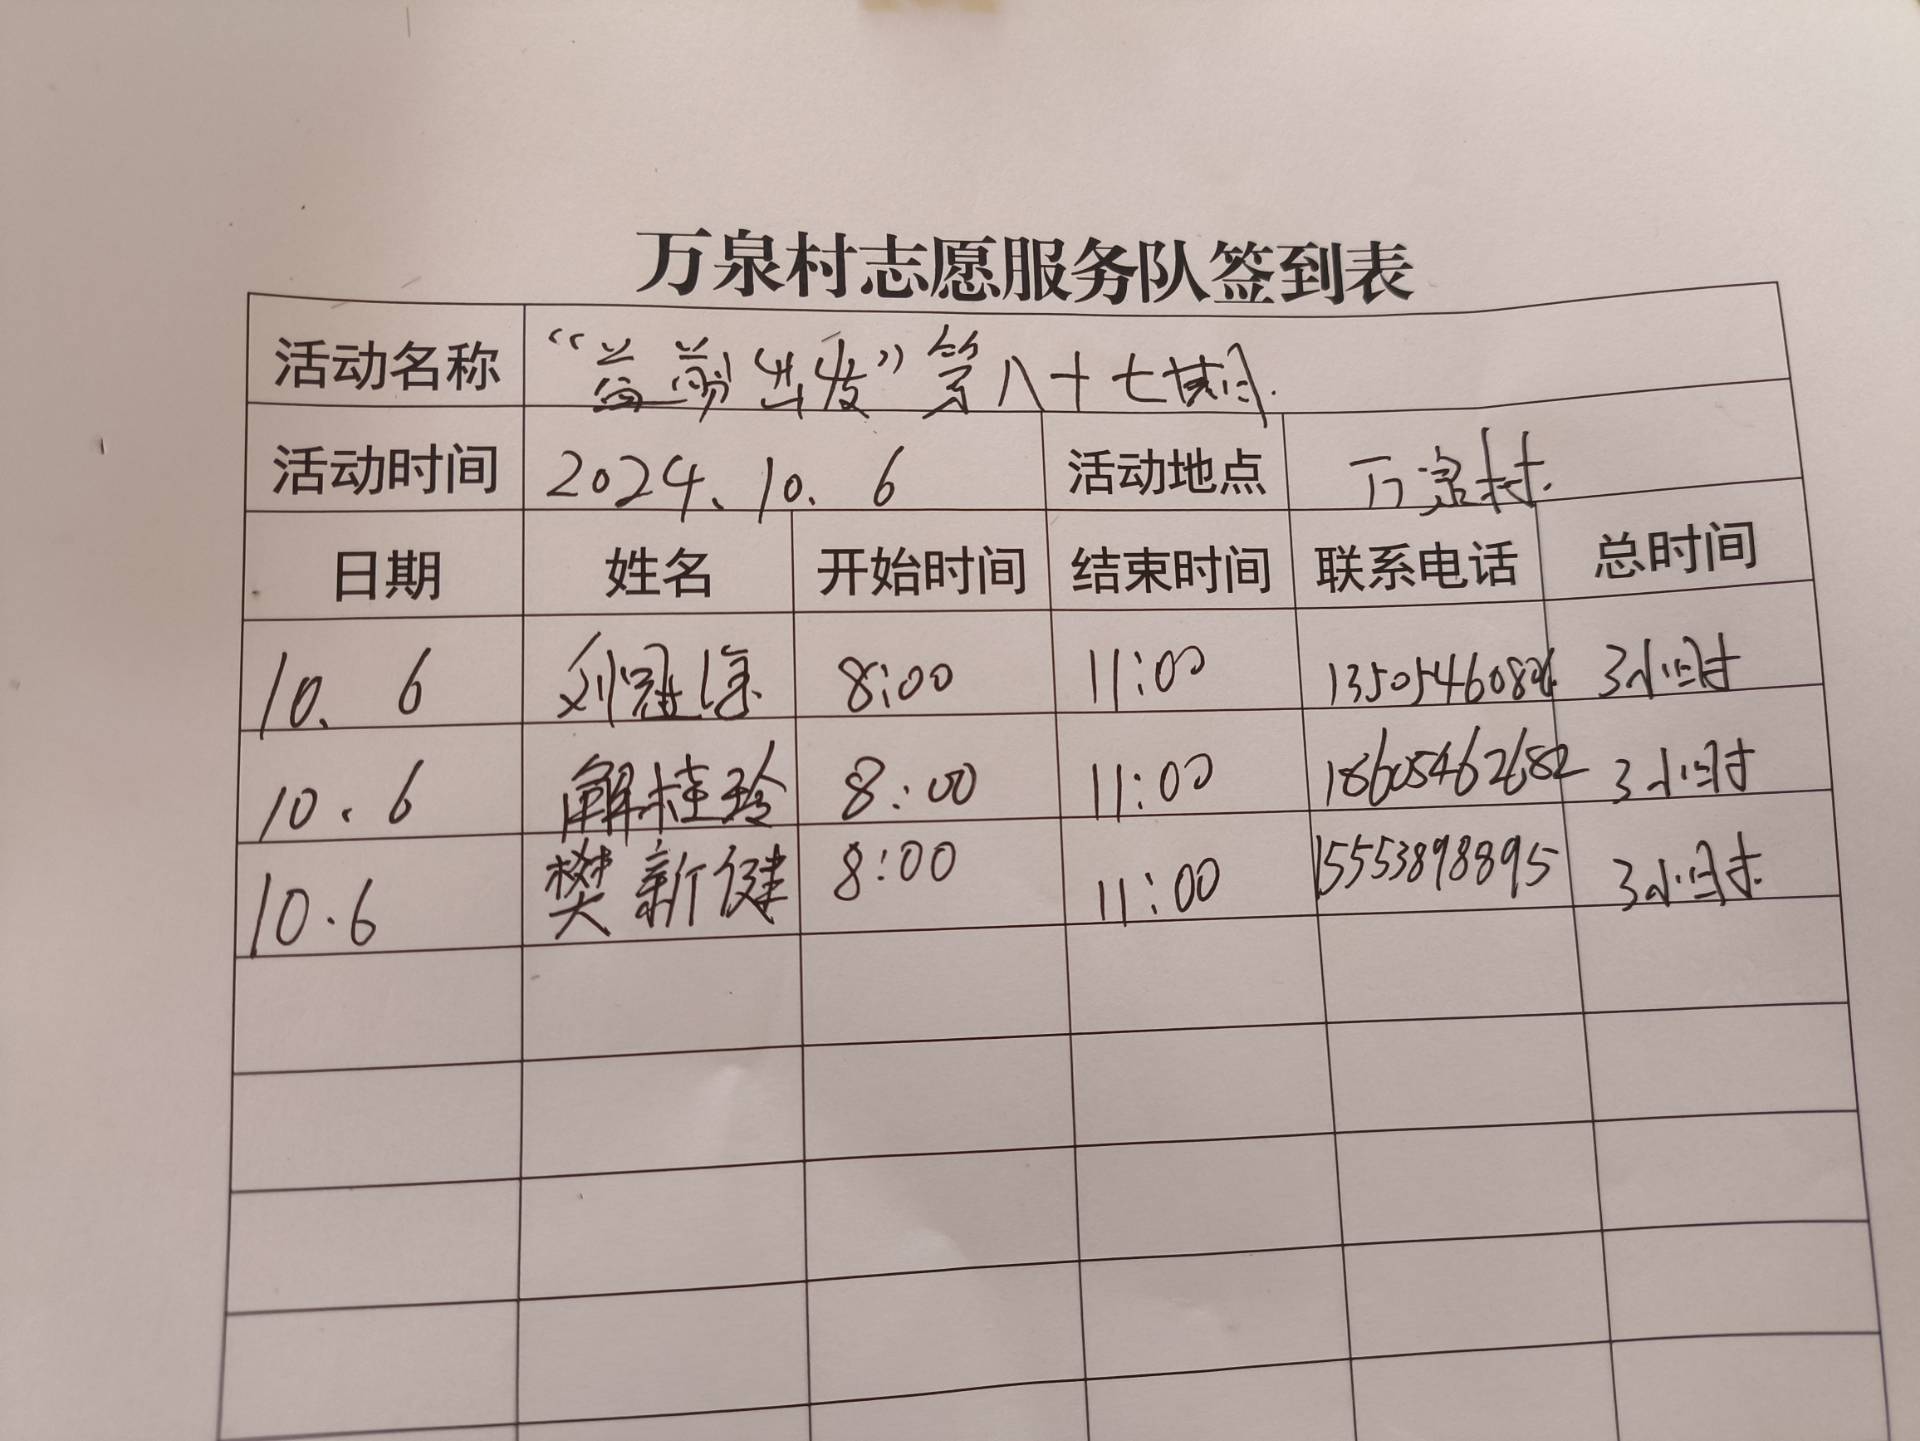 万泉村志愿服务队签到表
活动名称 “益剪出发”第八十七期.
活动时间 2024.10.6 活动地点 万泉村.
日期 姓名 开始时间 结束时间 联系电话 总时间
10.6 刘冠 8:00 11:00 3小时
10.6 解桂玲 8:00 11:00 18605462682 3小时
10.6 樊新健 8:00 11:00 15553898895 3小时.